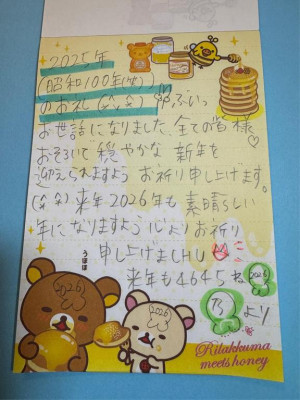 2025年
(昭和100年(せ))
のお礼(^^)
お世話になりました、全ての皆様
おそろいで 穏やかな 新年を
迎えられますよう お祈り申し上げます。
来年2026年も 素晴らしい
年になりますよう心よりお祈り
申し上げましHU
うほほ
来年も4645ね
2026
2026
2026
より
Rilakkuma
meets honey